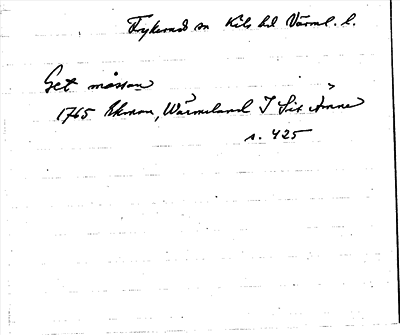 Frykerud sn Kils hd Värml. l.
Get måssan
1765 Ekman, Wärmeland I Sitt Ämne
s. 425